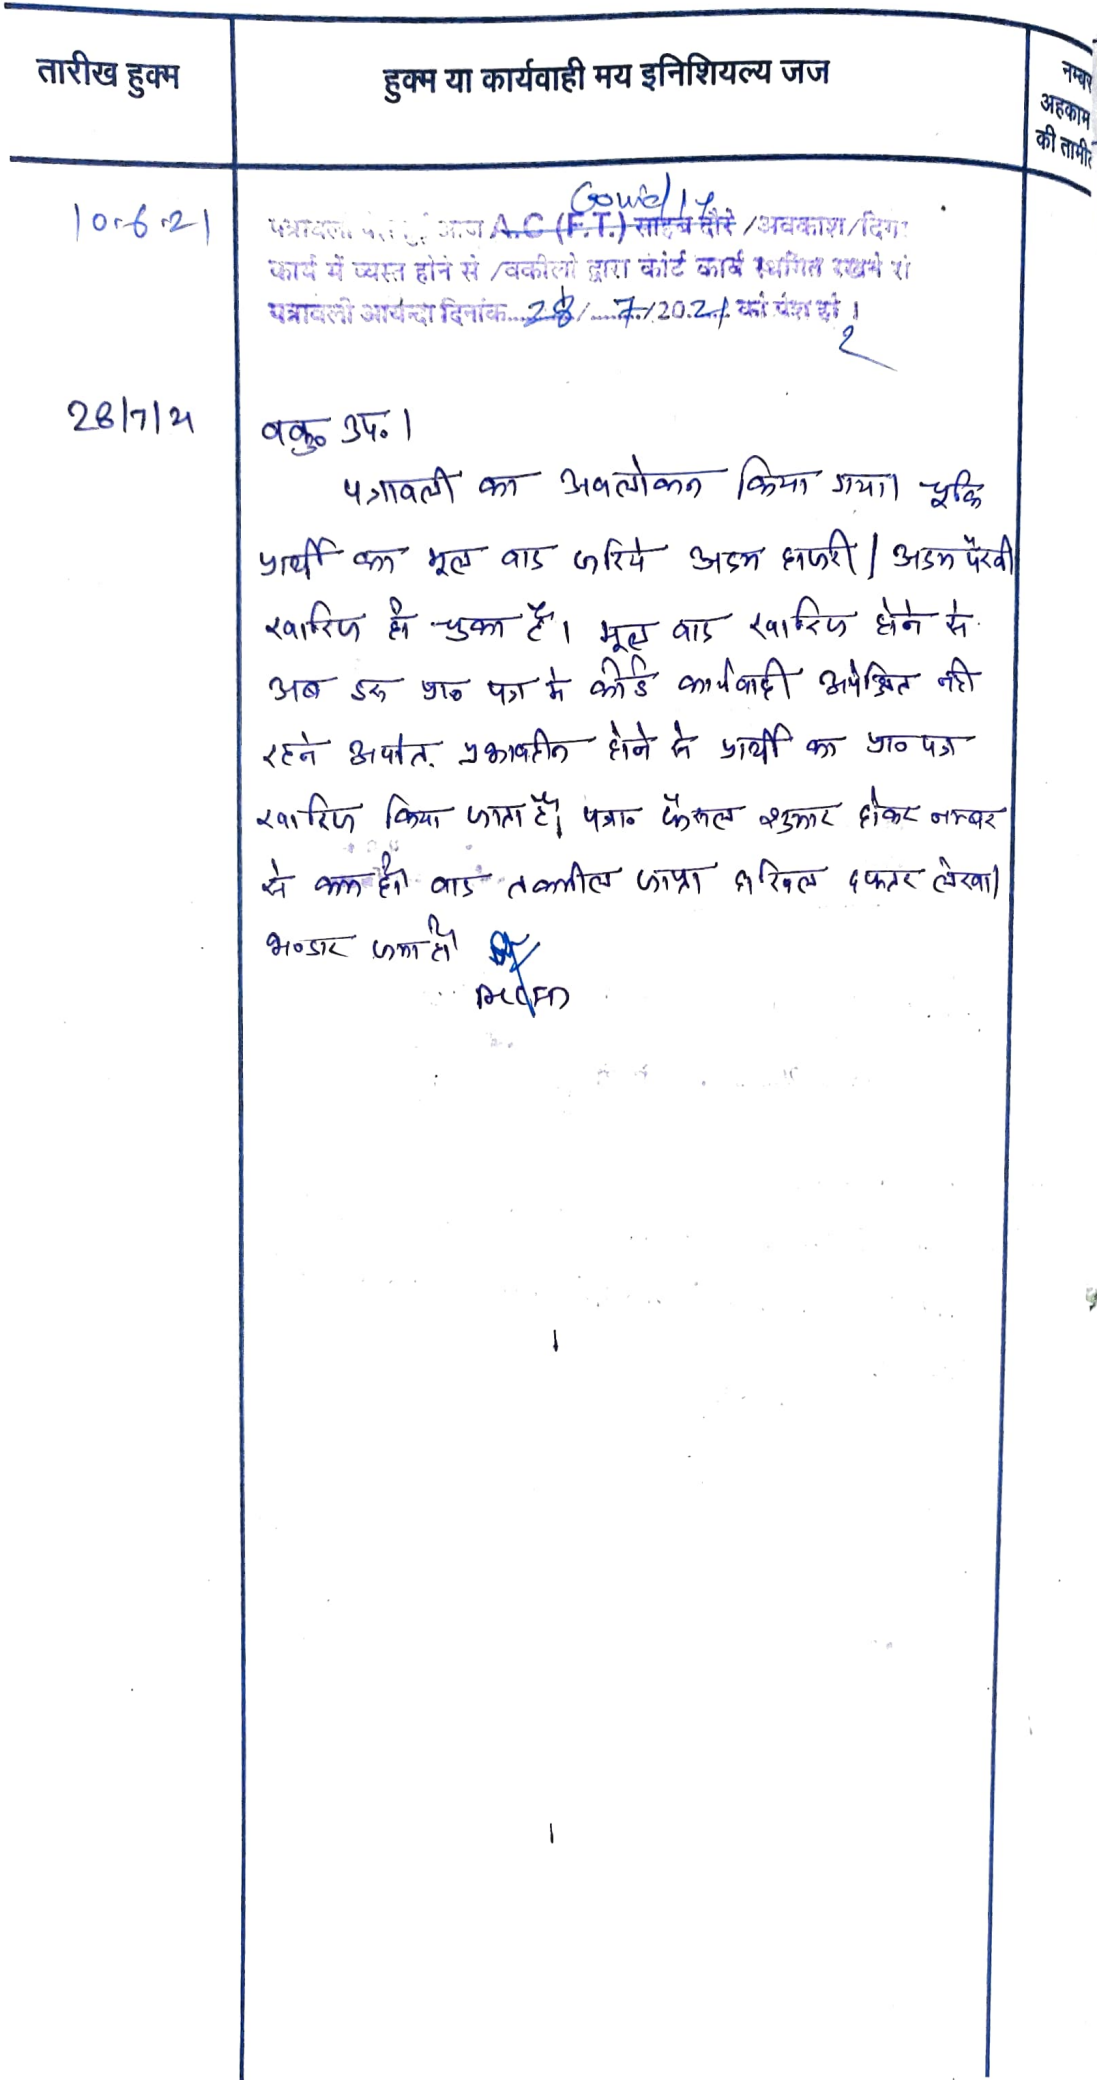 तारीख हुक्म
हुक्म या कार्यवाही मय इनिशियल्य जज
नम्बर
अहकाम
की तामील
10-6-21
Covid 19
आज A.C (F.T.) साहब दौरे /अवकाश/दिगर
कार्य में व्यस्त होने से /वकीलो द्वारा कोर्ट कार्य स्थगित रखने से
पत्रावली आयन्दा दिनांक....28/....7/2021 को पेश हो ।
28/7/21
वकु० उप० ।
पत्रावली का अवलोकन किया गया। चूकि
प्रार्थी का मूल वाद जरिये अदम हाजरी / अदम पैरवी
खारिज हो चुका है। मूल वाद खारिज होने से
अब इस प्रा० पत्र मे कोई कार्यवाही अपेक्षित नही
रहने अर्थात् प्रभावहीन होने से प्रार्थी का प्रा० पत्र
खारिज किया जाता है। पत्रा० फैसल शुमार होकर नम्बर
से कम हो। बाद तकमील जाप्ता दाखिल दफ्तर लेखा
भण्डार जमा हो